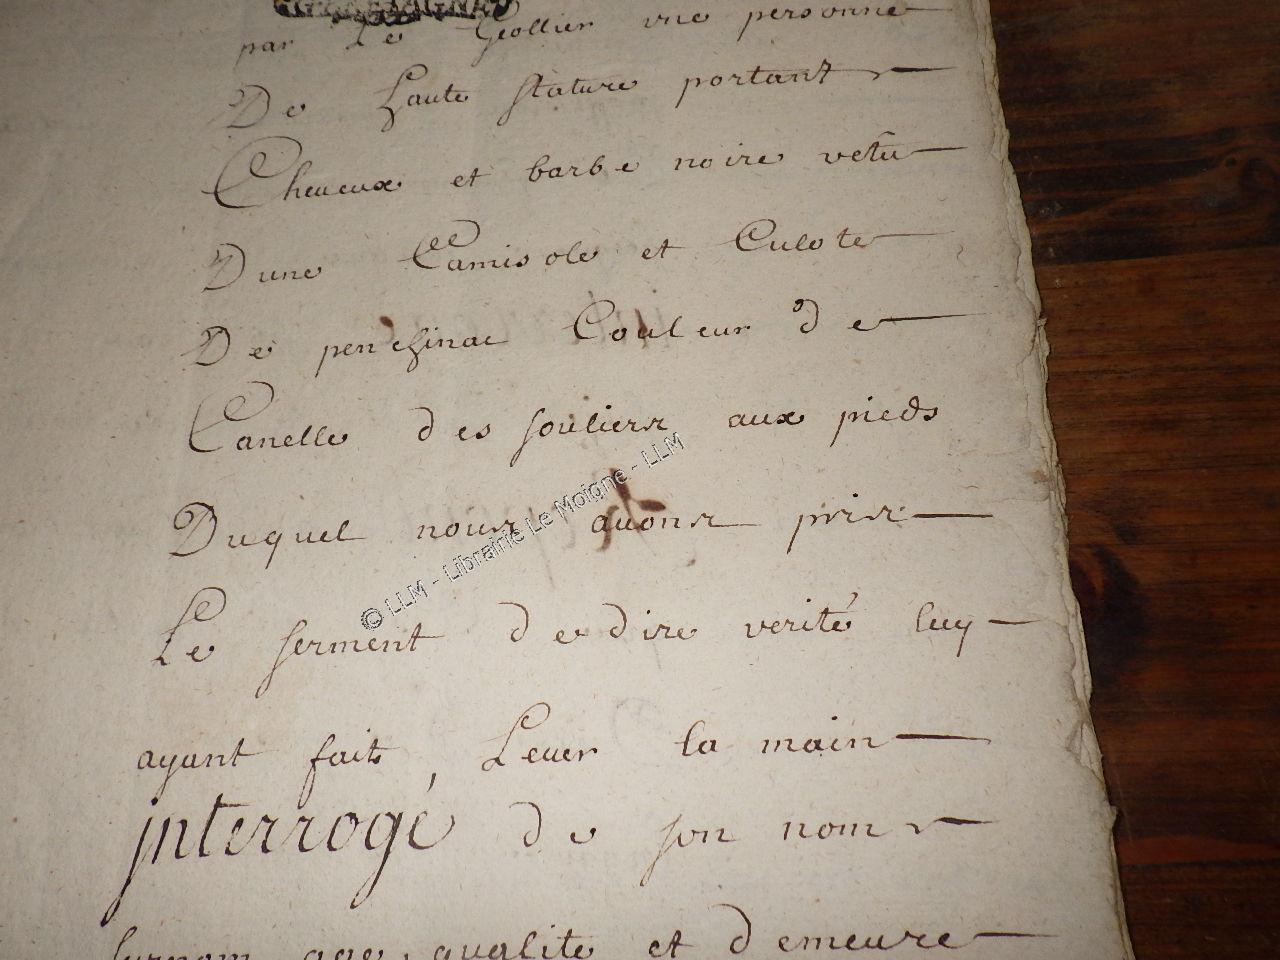 par Le Geollier vne personne
De haute stature portant
Cheueux et barbe noire vetu
Dune Camisole et Culote
De penchinac Couleur de
Canelle des souliers aux pieds
Duquel nous auons pris
© LLM - Librairie Le Moigne - LLM
Le serment de dire verité luy
ayant fait Leuer la main
jnterrogé de son nom
surnom age, qualite et demeure